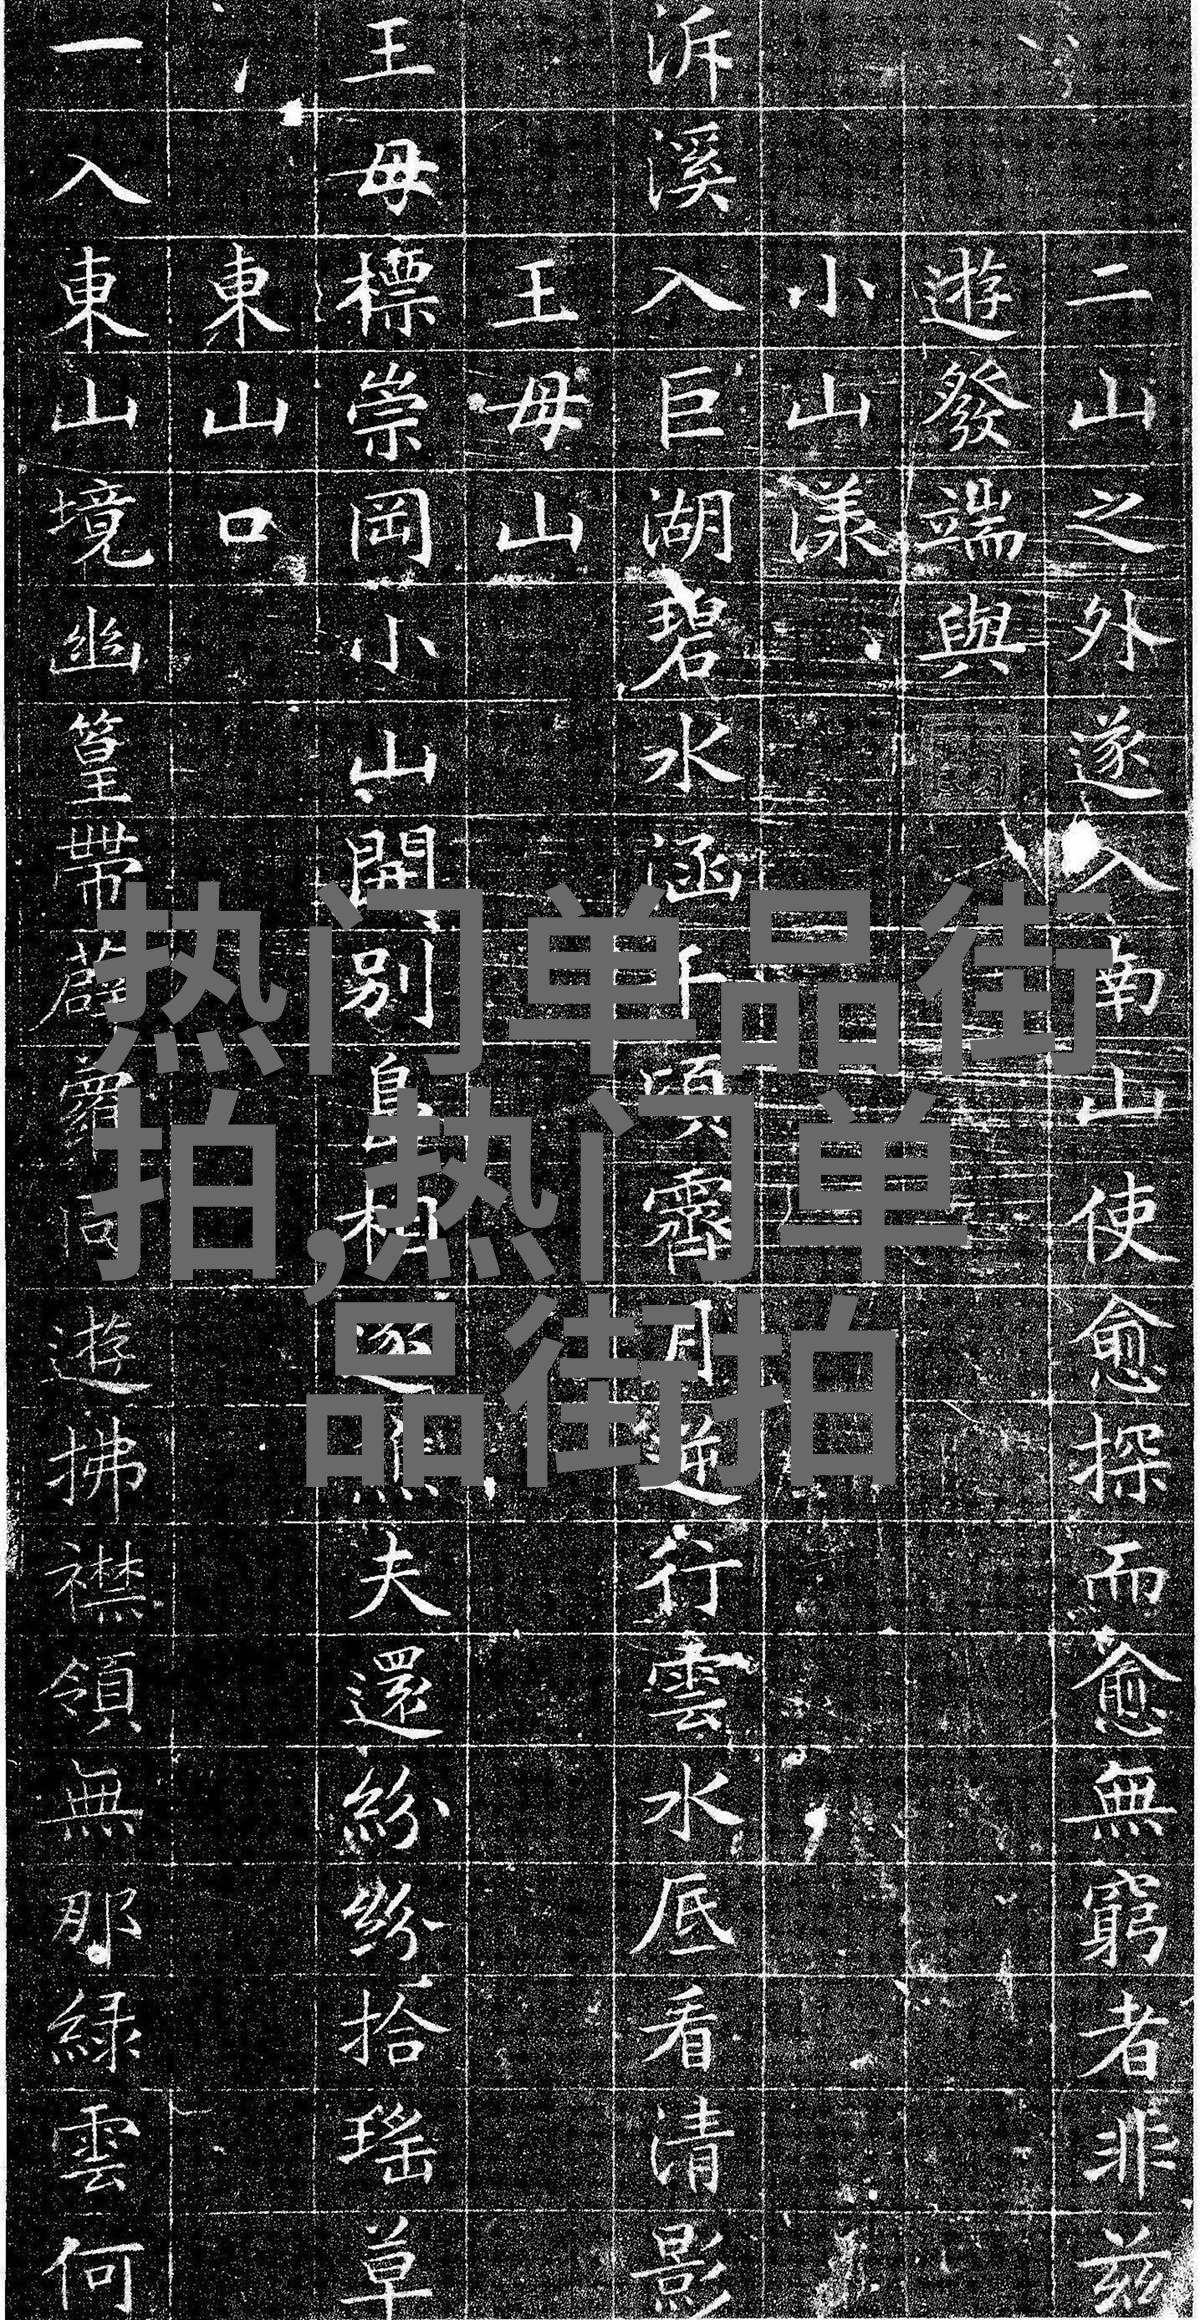 二山之外遂入南山使愈探而愈無窮者非兹
遊發端與
小山漾
泝溪入巨湖碧水涵千頃霽月逆行雲水底看清影
王母山
王母標崇岡小山開別島相逐樵夫還紛紛拾瑤草
東山口
一入東山境幽篁帶薜蘿同遊拂襟領無那綠雲何
热门单品街
拍,热门单
品街拍